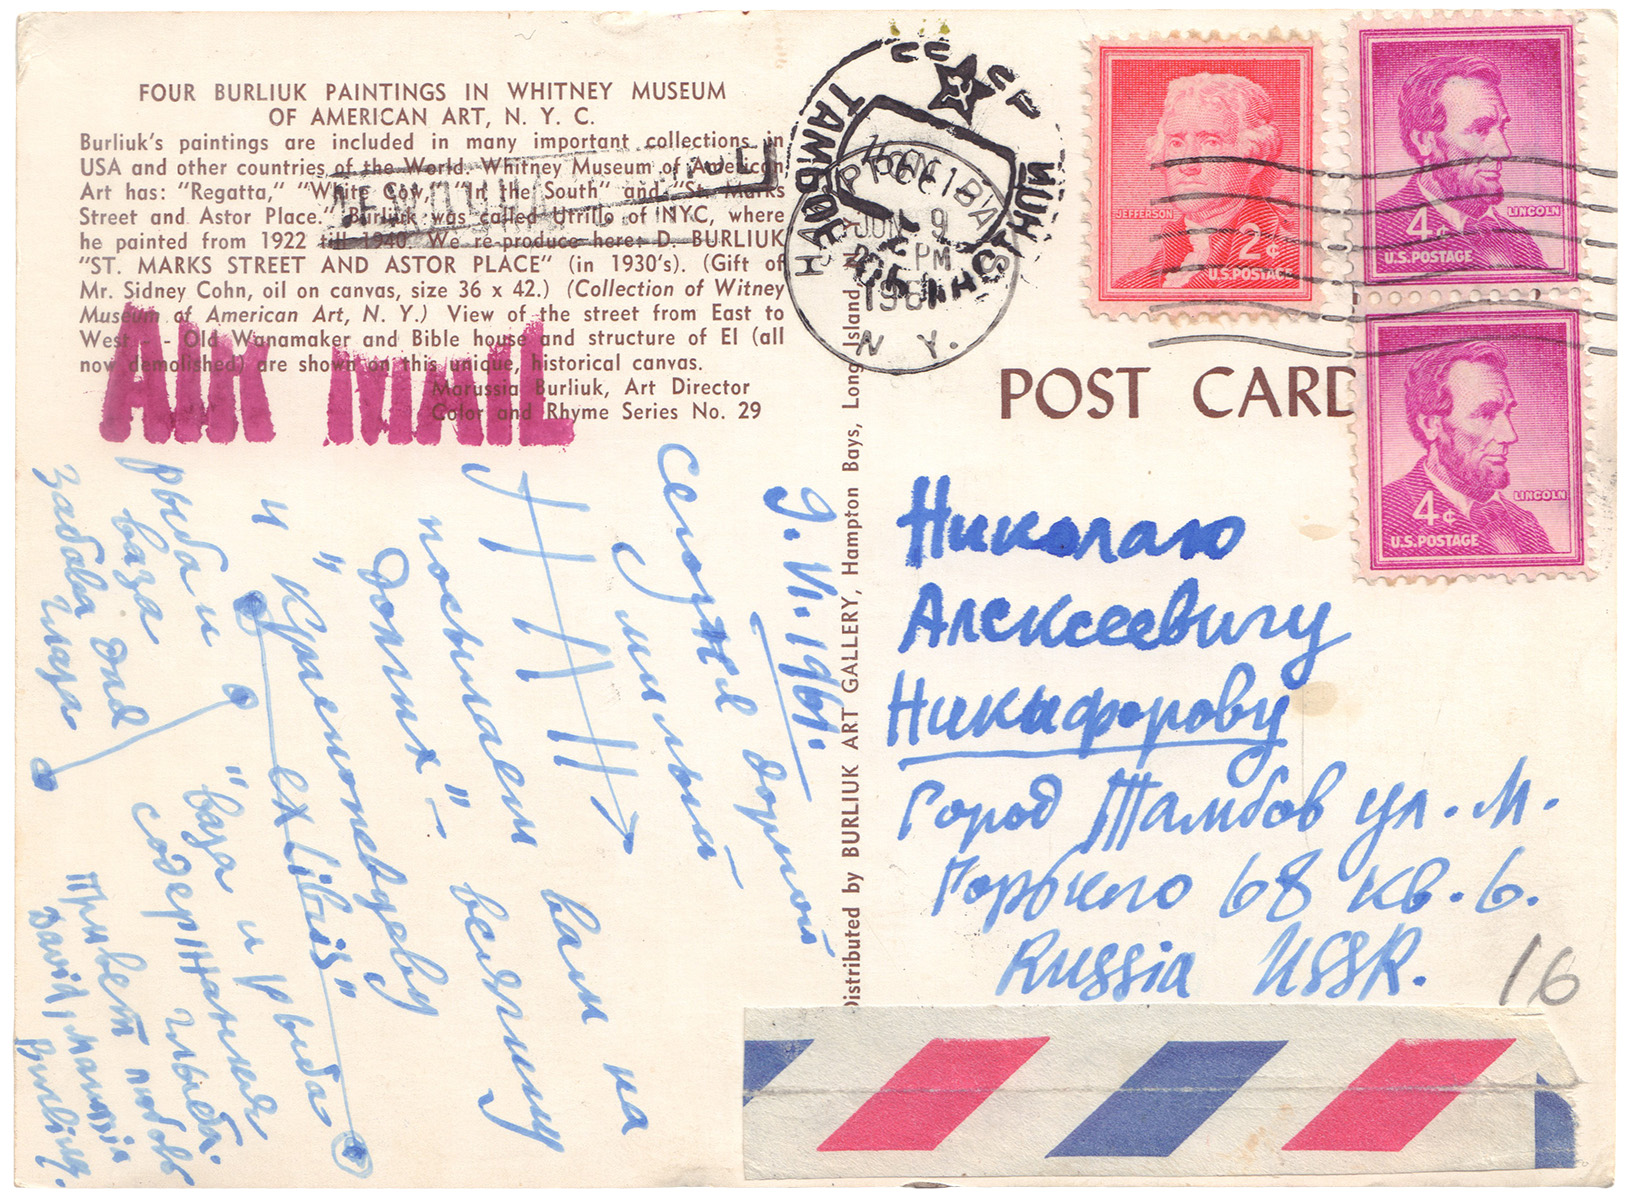 FOUR BURLIUK PAINTINGS IN WHITNEY MUSEUM
OF AMERICAN ART, N. Y. C.
Burliuk's paintings are included in many important collections in
USA and other countries of the World. Whitney Museum of American
Art has: "Regatta," "White Cow," "In the South" and "St. Marks
Street and Astor Place." Burliuk was called Utrillo of NYC, where
he painted from 1922 till 1940. We re-produce here: D. BURLIUK
"ST. MARKS STREET AND ASTOR PLACE" (in 1930's). (Gift of
Mr. Sidney Cohn, oil on canvas, size 36 x 42.) (Collection of Witney
Museum of American Art, N. Y.) View of the street from East to
West - - Old Wanamaker and Bible house and structure of El (all
now demolished) are shown on this unique, historical canvas.
Marussia Burliuk, Art Director
Color and Rhyme Series No. 29
AIR MAIL
СССР
ТАМБОВ
JUN 9
PM
1961
N. Y.
JEFFERSON
2¢
U.S. POSTAGE
4¢
LINCOLN
U.S. POSTAGE
4¢
LINCOLN
U.S. POSTAGE
POST CARD
Distributed by BURLIUK ART GALLERY, Hampton Bays, Long Island
Николаю
Алексеевичу
Никифорову
Город Тамбов ул. М.
Горького 68 кв. 6.
Russia USSR.
16
9. VI. 1961.
Сегодня дорогой
милый
Н Н Н
вам на
посылаем веслину
"Долгих" –
Кулемоневдеву
" ex libris"
и рыба
"ваза и рыба
содержания
рыба и
ваза для
забавы глаза
Привет любовь
David, Marussia
Burliuk.